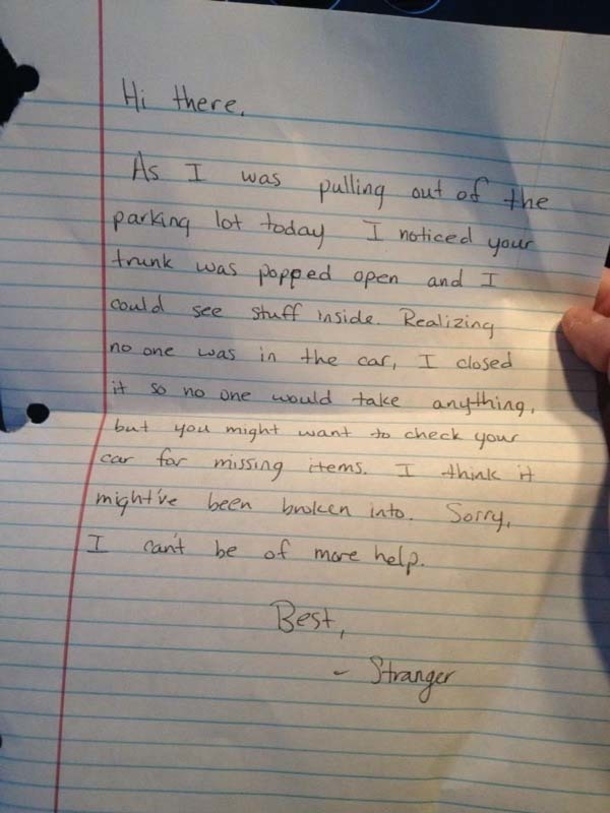 Hi there,
As I was pulling out of the
parking lot today I noticed your
trunk was popped open and I
could see stuff inside. Realizing
no one was in the car, I closed
it so no one would take anything,
but you might want to check your
car for missing items. I think it
might've been broken into. Sorry,
I can't be of more help.
Best,
- Stranger